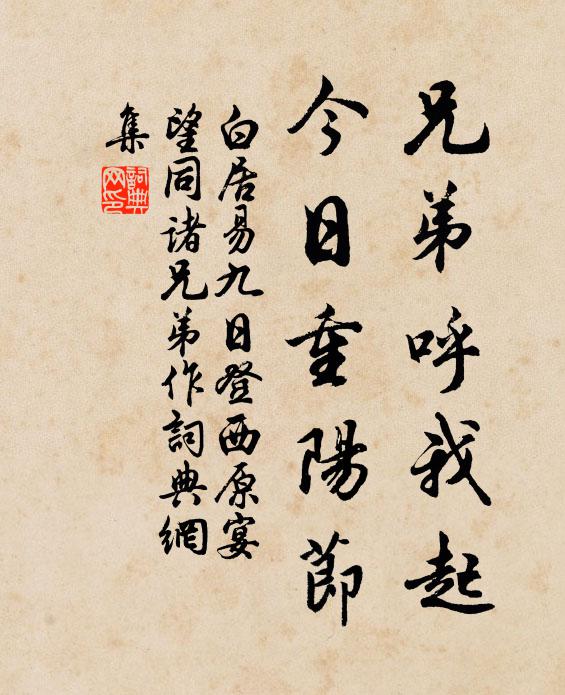 兄弟呼我起
今日重陽節
白居易九日登西原宴
望同諸兄弟作詞典網
集
詞典
网印